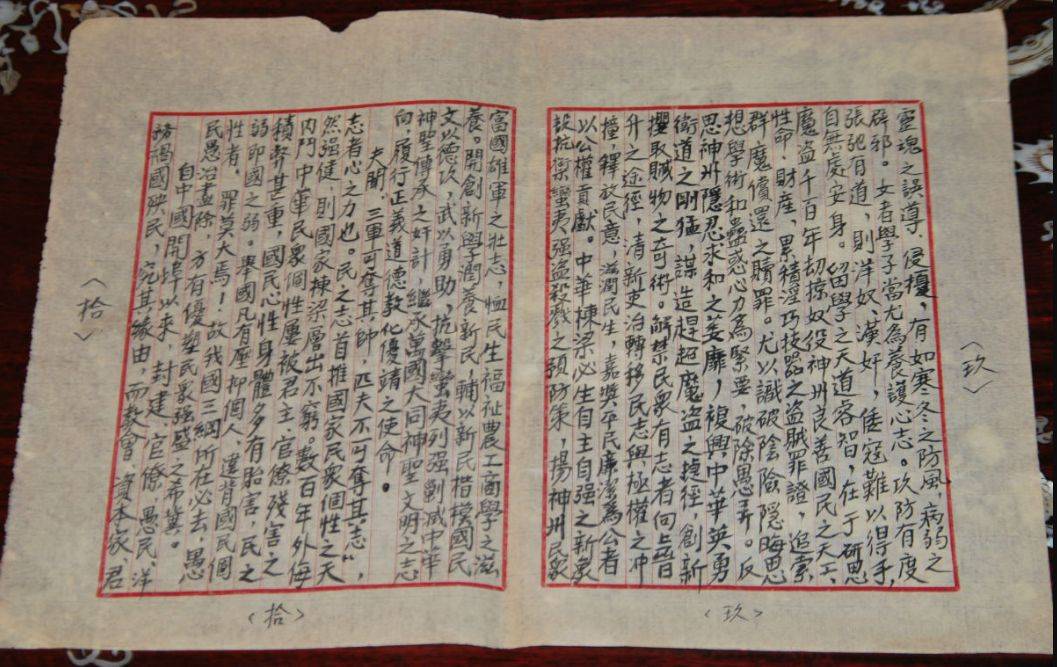 靈魂之誤導，侵擾，有如寒冬之防風，病弱之
辟邪。女者學子當尤為養護心志。攻防有度
張弛有道，則洋奴、漢奸，倭寇難以得手，
自無處安身。留學之天道容智，在于研思
魔盗千百年劫掠奴役神州良善國民之天工、
性命、財産，累積淫巧技器之盗賊罪證，追索
群魔償還之贖罪。尤以識破陰險隱晦思
想學術和蠱惑心力為緊要，破除愚弄。反
思神州隱忍求和之萎靡，複興中華英勇
衛道之剛猛，謀造趕超魔盗之捷徑，創新
攫取贓物之奇術。解禁民眾有志者向上晋
升之途徑，清新吏治轉移民志與極權之冲
撞，釋放民意，滋潤民生，嘉獎平民廉潔為公者
以公權貢獻。中華棟梁必生自主自强之新象
設抗禦蠻夷强盗殺戮之預防策，揚神州民眾
〈玖〉
〈玖〉
富國雄軍之壯志，恤民生福祉農工商學之滋
養。開創新學潤養新民，輔以新民楷模國民
文以德攻，武以勇助，抗擊蠻夷列强剿滅中華
神聖傳承之奸計，繼承萬國大同神聖文明之志
向，履行正義道德教化優靖之使命。
夫聞，三軍可奪其帥，匹夫不可奪其志“，
志者心之力也。民之志首推國家民眾個性之天
然强健，則國家棟梁層出不窮。數百年外侮
内鬥中華民眾個性屢被君主、官僚殘害之
積弊甚重，國民心性身體多有胎害，民之
弱即國之弱。舉國凡有壓抑個人、違背國民個
性者，罪莫大焉！故我國三綱所在必去，愚
民愚治盡除，方有優塑民眾强盛之希冀。
自中國開埠以来，封建、官僚、愚民、洋
務禍國殃民，究其緣由，而教會、資本家、君
〈拾〉
〈拾〉